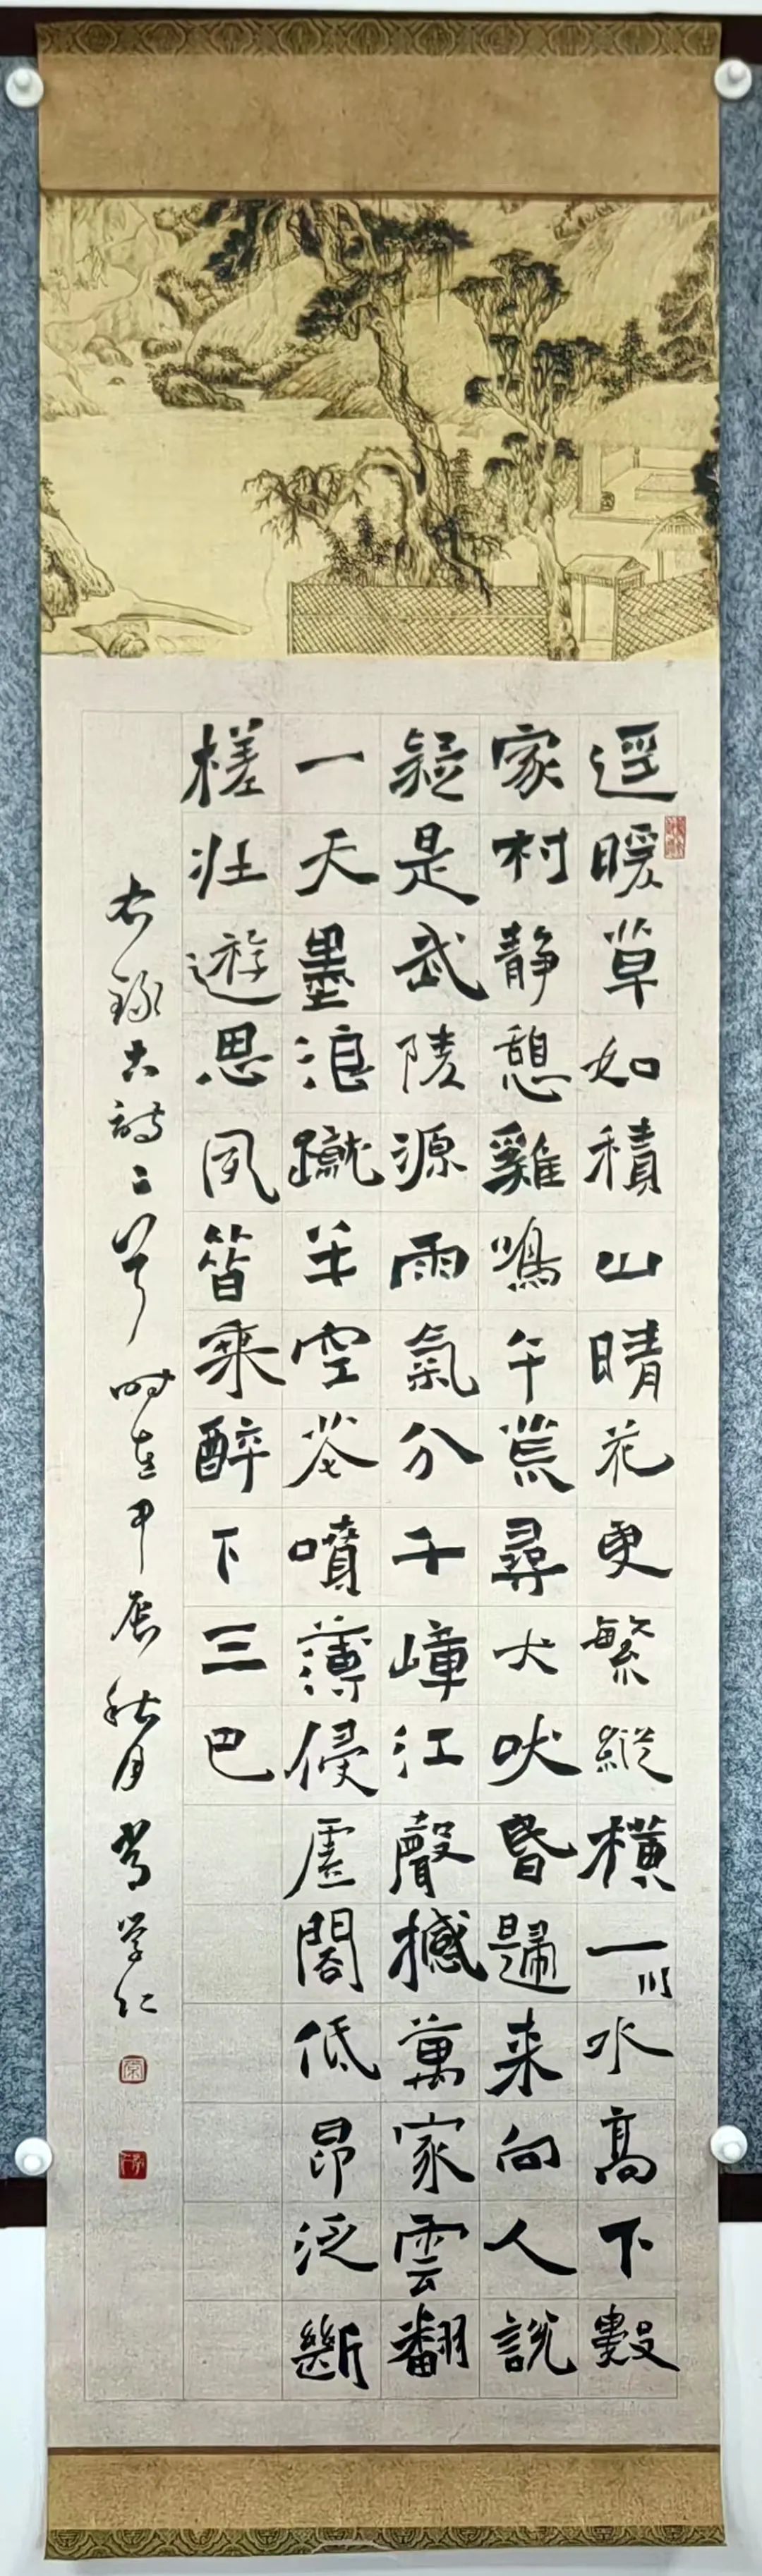 逕暖草如積山晴花更繁縱橫一川水高下數
家村静憩雞鳴午荒尋犬吠昏歸来向人說
疑是武陵源雨氣分千嶂江聲撼萬家雲翻
一天墨浪蹴半空花噴薄侵虛閣低昂泛斷
槎壯遊思夙昔乘醉下三巴
右錄古詩二首时在甲辰秋月常学仁